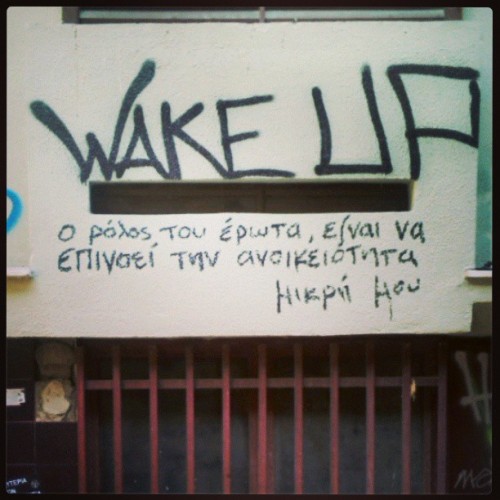 WAKE UP
Ο ρόλος του έρωτα, είναι να
επινοεί την ανοικειότητα
μικρή μου